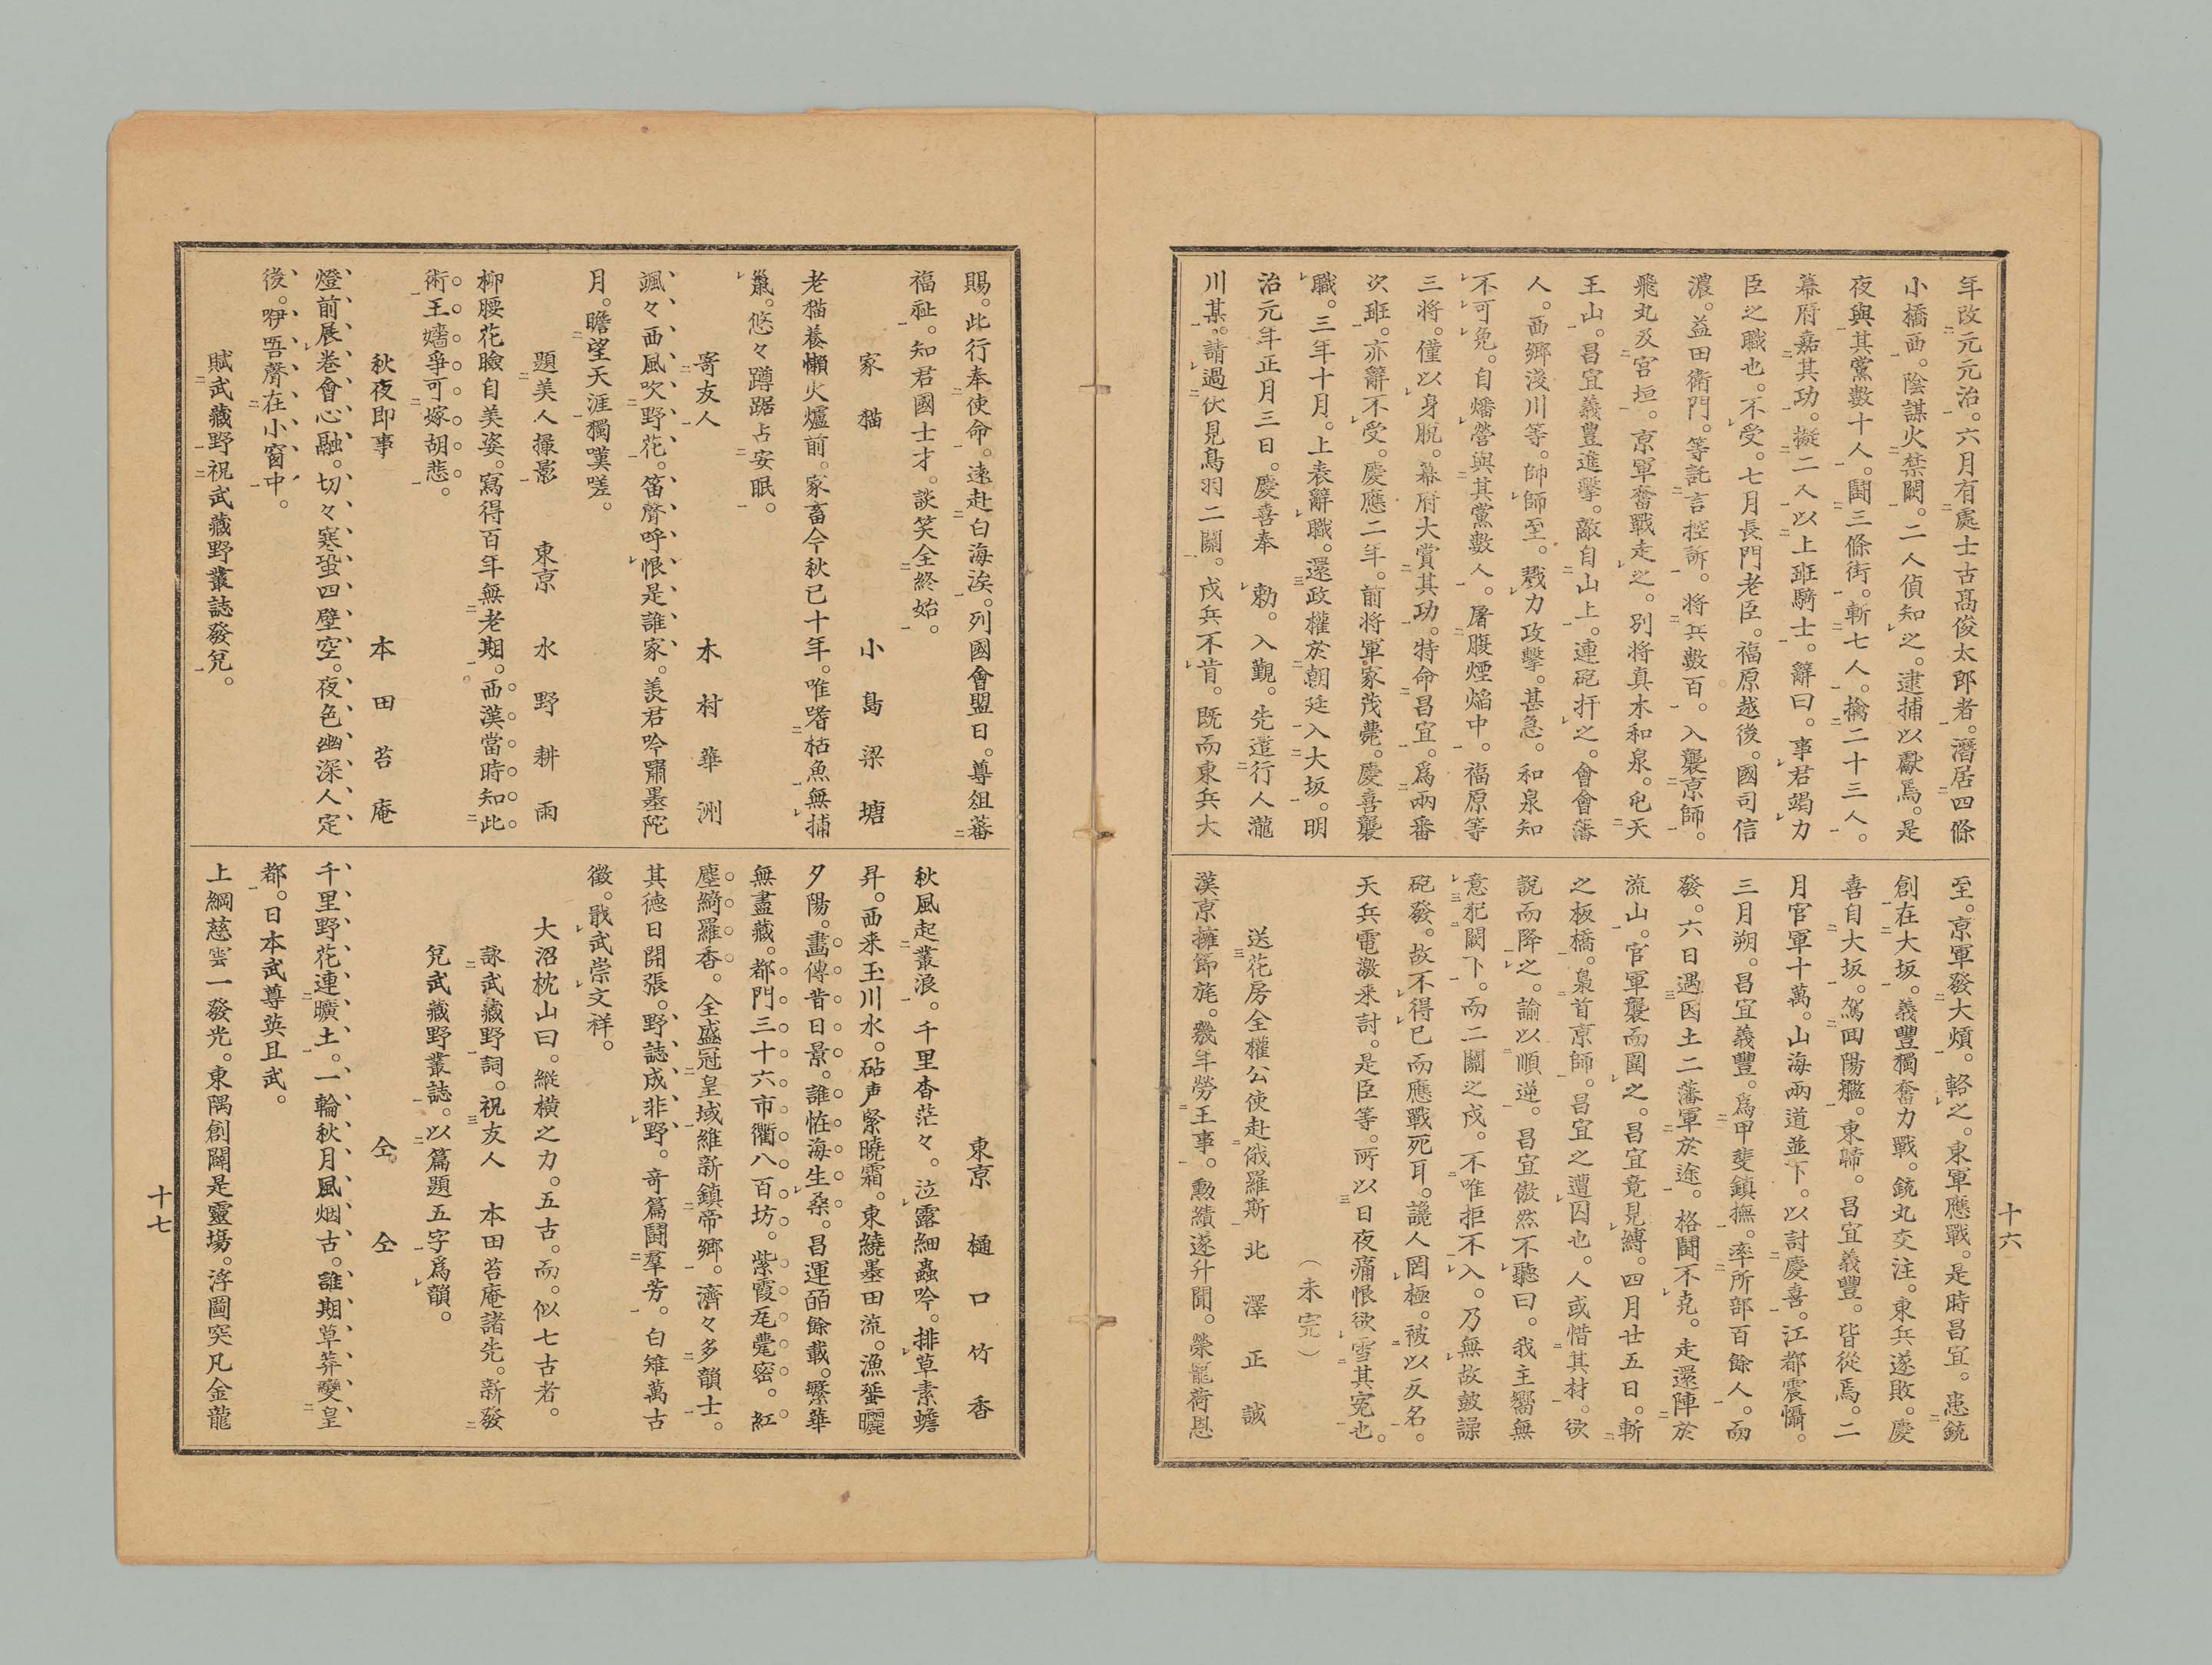 年改元元治。六月有處士古髙俊太郎者。潛居四條
小橋西。陰謀火禁闕。二人偵知之。逮捕以獻焉。是
夜與其黨數十人。鬪三條街。斬七人。擒二十三人。
幕府嘉其功。擬二人以上班騎士。辭曰。事君竭力
臣之職也。不受。七月長門老臣。福原越後。國司信
濃。益田衛門。等託言控訴。將兵數百。入襲京師。
飛丸及宮垣。京軍奮戰走之。別將真木和泉。屯天
王山。昌宜義豐進擊。敵自山上。連砲扞之。會會藩
人。西鄉淺川等。帥師至。戮力攻擊。甚急。和泉知
不可免。自燔營與其黨數人。屠腹煙焰中。福原等
三将。僅以身脫。幕府大賞其功。特命昌宜。爲兩番
次班。亦辭不受。慶應二年。前将軍家茂薨。慶喜襲
職。三年十月。上表辭職。還政權於朝廷入大坂。明
治元年正月三日。慶喜奉 勅。入覲。先遣行人瀧
川某。請過伏見鳥羽二關。戍兵不肯。既而東兵大
至。京軍發大煩。輅之。東軍應戰。是時昌宜。患銃
創在大坂。義豐獨奮力戰。銃丸交注。東兵遂敗。慶
喜自大坂。駕回陽艦。東歸。昌宜義豐。皆從焉。二
月官軍十萬。山海兩道並下。以討慶喜。江都震慴。
三月朔。昌宜義豐。爲甲斐鎮撫。率所部百餘人。而
發。六日遇因土二藩軍於途。格鬪不克。走還陣於
流山。官軍襲而圍之。昌宜竟見縛。四月廿五日。斬
之板橋。梟首京師。昌宜之遭囚也。人或惜其材。欲
說而降之。諭以順逆。昌宜傲然不聽曰。我主嚮無
意犯闕下。而二關之戍。不唯拒不入。乃無故鼓譟
砲發。故不得已而應戰死耳。讒人罔極。被以反名。
天兵電激来討。是臣等。所以日夜痛恨欲雪其冤也。
（未完）
送花房全權公使赴俄羅斯 北澤正誠
漢京擁節旄。幾年勞王事。勲績遂升聞。榮寵荷恩
十六
賜。此行奉使命。遠赴白海涘。列國會盟日。尊俎蕃
福祉。知君國士才。談笑全終始。
家猫 小島梁塘
老猫養懶火爐前。家畜今秋已十年。唯嗜枯魚無捕
鼠。悠々蹲踞占安眠。
寄友人 木村華洲
颯々西風吹野花。笛聲呼恨是誰家。羨君吟嘯墨陀
月。瞻望天涯獨嘆嗟。
題美人撮影 東京 水野耕雨
柳腰花瞼自美姿。寫得百年無老期。西漢當時知此
術。王嬙爭可嫁胡悲。
秋夜即事 本田苔庵
燈前展卷會心融。切々寒蛩四壁空。夜色幽深人定
後。咿唔聲在小窗中。
賦武藏野祝武藏野叢誌發兌。
東京 樋口竹香
秋風起叢浪。千里杳茫々。泣露細蟲吟。排草素蟾
昇。西来玉川水。砧声緊曉霜。東繞墨田流。漁蜑曬
夕陽。畫傳昔日景。誰恠海生桑。昌運皕餘載。繁華
無盡藏。都門三十六市衢八百坊。紫霞尨甍密。紅
塵綺羅香。全盛冠皇域維新鎮帝鄉。濟々多韻士。
其德日開張。野誌成非野。奇篇鬪羣芳。白雉萬古
徵。戢武崇文祥。
大沼枕山曰。縱橫之力。五古。而。似七古者。
詠武藏野詞。祝友人 本田苔庵諸先。新發
兌武藏野叢誌。以篇題五字爲韻。
仝 仝
千里野花連曠土。一輪秋月風烟古。誰期草莽變皇
都。日本武尊英且武。
上綱慈雲一發光。東隅創闢是靈場。浮圖突兀金龍
十七